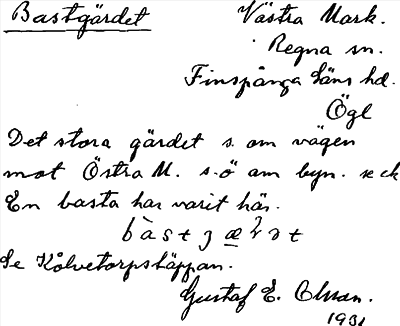 Bastgärdet Västra Mark.
Regna sn.
Finspånga läns hd.
Ögl
Det stora gärdet s. om vägen
mot Östra M. s.ö am byn. se ek
En basta har varit här.
Se Kolvetorpstäppan.
Gustaf E. Olsson.
1931